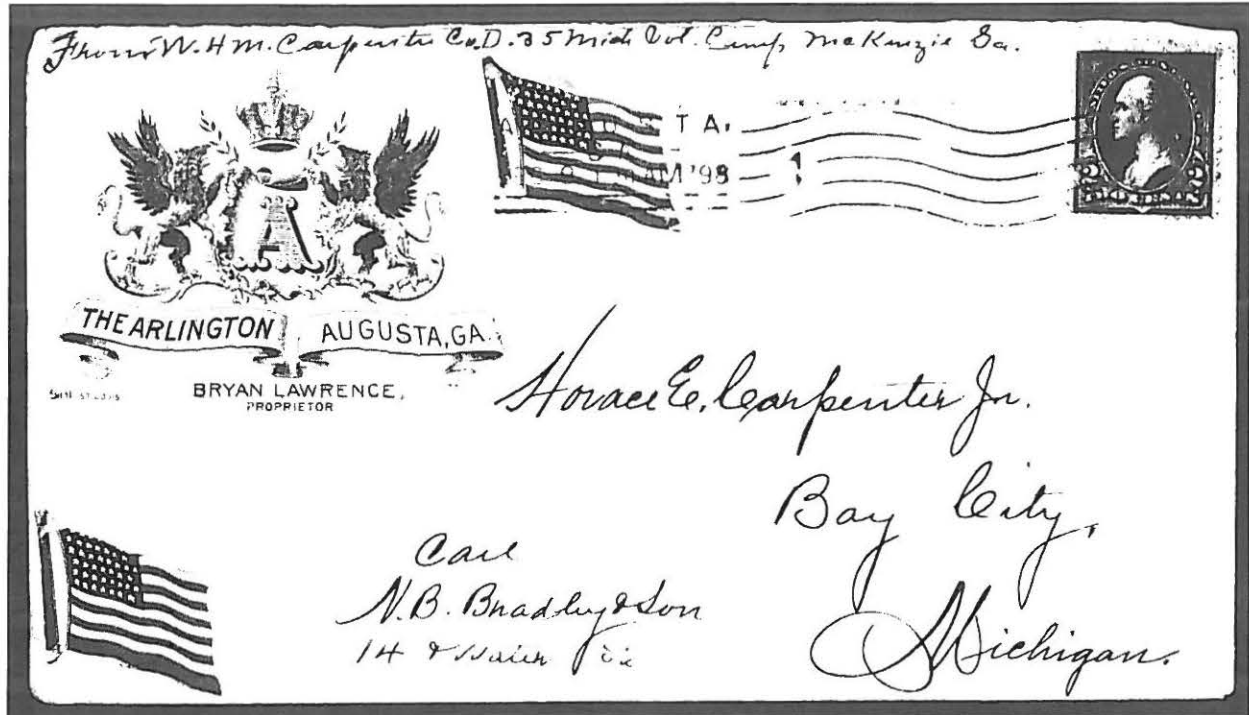 From W. H. M. Carpenter Co. D. 35 Mich Vol. Camp McKenzie Ga.
T A.
AM '98
1
A
THE ARLINGTON AUGUSTA, GA.
BRYAN LAWRENCE,
PROPRIETOR
Horace E. Carpenter Jr.
Bay City,
Michigan.
Care
N. B. Bradley & Son
14 & Water